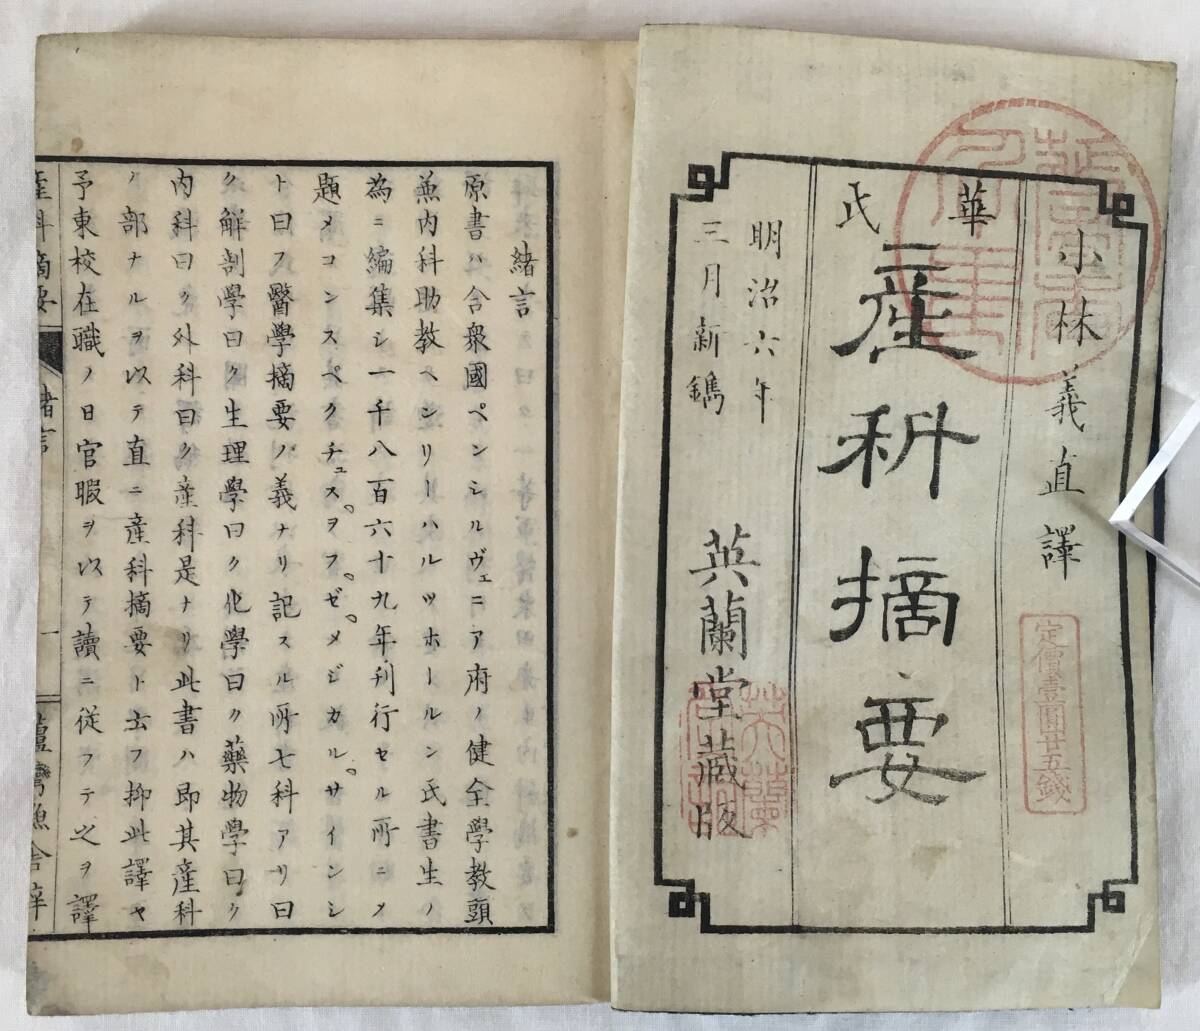 小林義直譯
定價壹圓廿五錢
華氏
産科摘要
明治六年
三月新鐫
英蘭堂藏版
緒言
原書ハ合衆國ペンシルヴェニア府ノ健全學教頭
兼内科助教ヘンリーハルツホールン氏書生ノ
為ニ編集シ一千八百六十九年刊行セル所ニメ
題メコンスペクチュス。ヲフ。ゼ。メジカル。サインシ
ト曰フ醫學摘要ノ義ナリ記スル所七科アリ曰
ク解剖學曰ク生理學曰ク化學曰ク藥物學曰ク
内科曰ク外科曰ク産科是ナリ此書ハ即其産科
ノ部ナルヲ以テ直ニ産科摘要ト云フ抑此譯ヤ
予東校在職ノ日官暇ヲ以テ讀ニ従フテ之ヲ譯
産科摘要
緒言
一